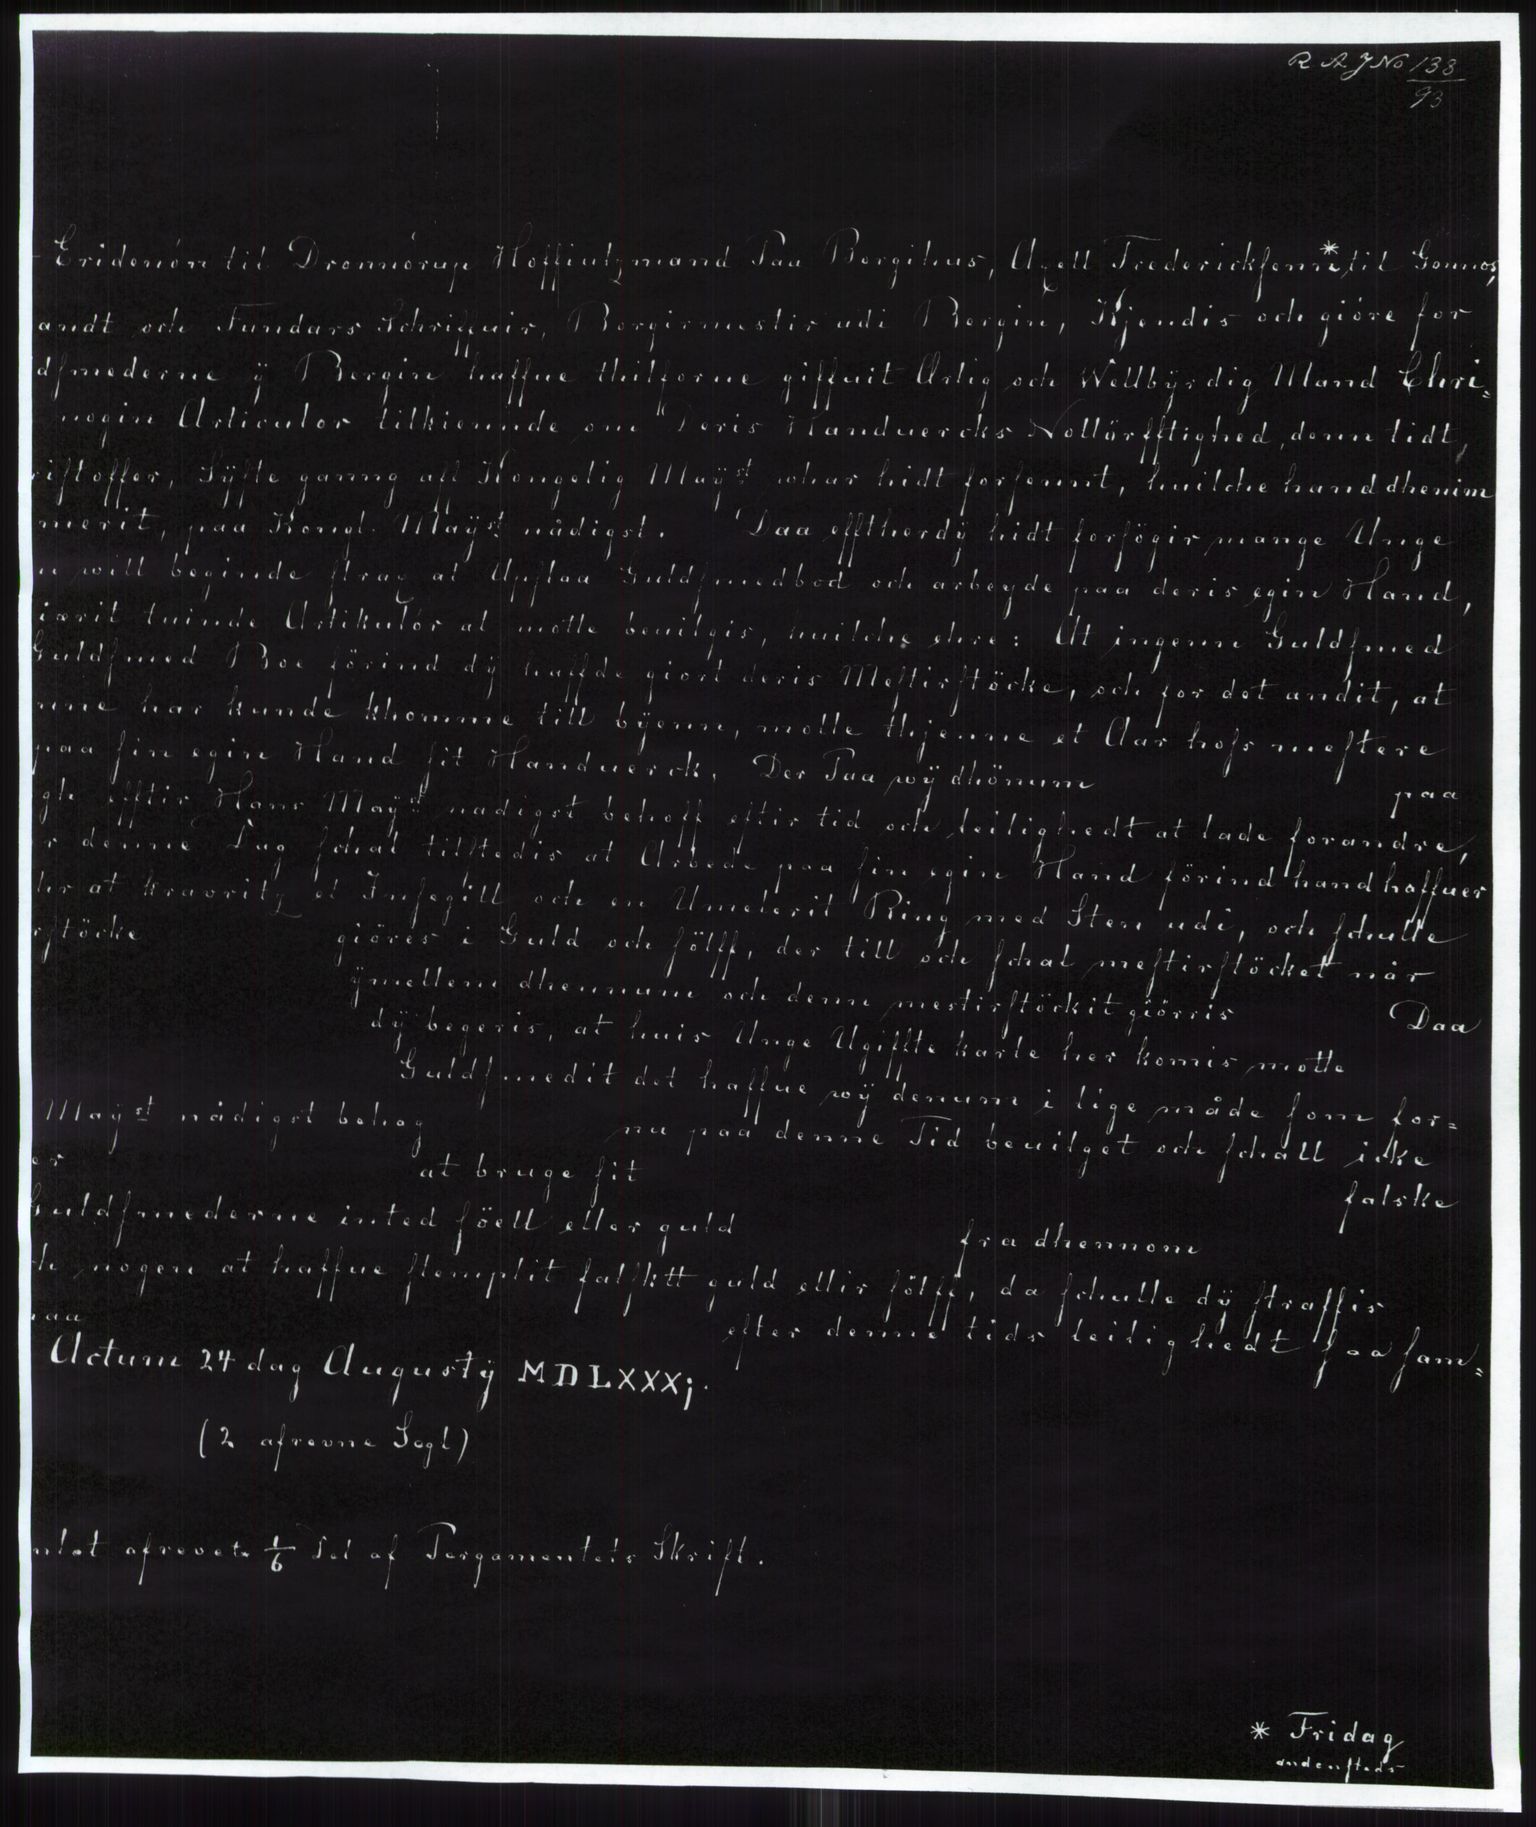 R A J No 133/93
Eridenön til Dronnörup Hoffuitzmand Paa Bergihus, Axell Frederickſenn * til Gounos,
andt och Fundars Schriffuir, Borgirmestir udi Bergin, Kjendis och giöre for
dſmederne ÿ Bergin haffue thilforne giffuit Ærlig och Wellbÿrdig Mand Chri=
nogin Articulor tilkiennde om Deris Handuercks Nottürfftighed, denn tidt,
riſtoffer, ſÿſte ganng aff Kongelig Maÿst whar hidt forſennt, huilche hand dhenim
merit, paa Kongl. Maÿst nådigst. Daa efftherdÿ hidt forſögir mange Unge
n will beginde ſtrax at Upſlaa Guldſmedbod och arbeyde paa deris egin Hand,
iærit tuinde Artikulór at motte beuilgis, huilche ehre: At ingenn Guldſmed
Guldſmed Boe förind dÿ haffde giort deris Meſtirſtöcke, och for det andit, at
nne har kunde khomme till bÿenn, motte thjenne et Aar hoſs meſtere
paa ſin egin Hand ſit Handuerck. Der Paa wÿ dhönum paa
gh efftir Hans Maÿst nadigst behoff eftir tid och leilighedt at lade forandre,
r denne Dag ſchal tilſtedis at Arbede paa ſin egin Hand förind hand haffuer
hr at kravritz et Inſegill och en Umelerit Ring med Sten udi, och ſchulle
rſtöcke giöres i Guld och ſölff, der till och ſchal meſtirſtöcket når
ÿmellem dhennum och denn mestirſtöckit giörris Daa
dÿ begeris, at huis Unge Ugiffte karle her komis motte
Guldſmedit det haffue wÿ denum i lige måde ſom for=
Maÿst nådigst behag nu paa denne Tid beuilget och ſchall icke
er at bruge ſit falske
Guldſmederne inted ſöell eller guld fra dhennom
h nogen at haffue ſtemplit falſktt guld ellir ſölff, da ſchulle dÿ ſtraffis
naa efter denne tids leilighedt ſaa ſam=
Actum 24 dag Augustÿ MDLXXXj.
(2 afrevne Segl)
ntet afrevet 1/6 Del af Pergamentets Skrift.
* Fridag
andenſteds